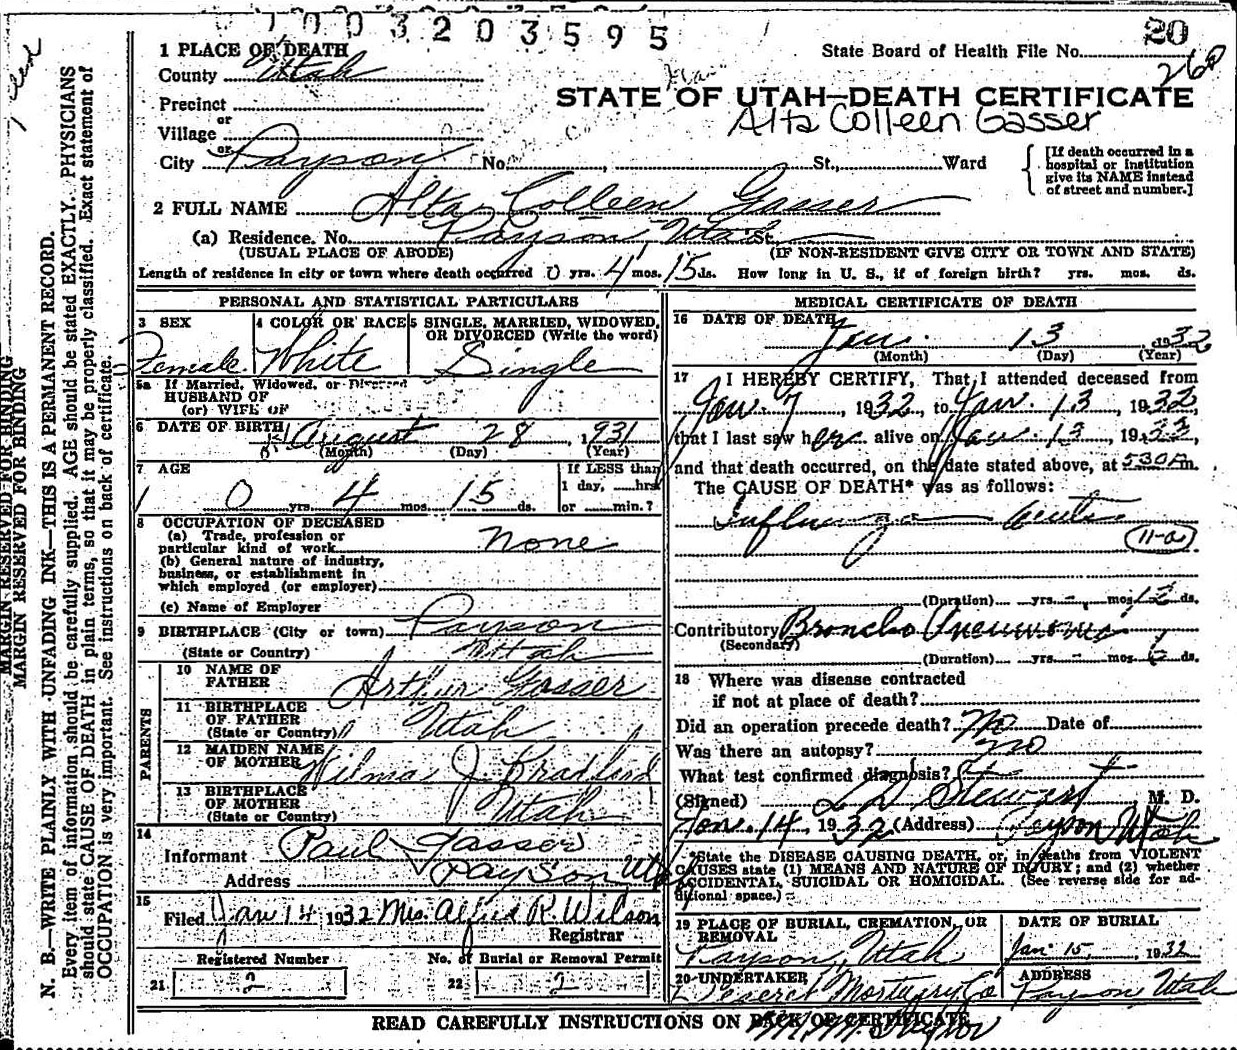 7003203595
20
1 PLACE OF DEATH
State Board of Health File No.
260
County Utah
Precinct
STATE OF UTAH—DEATH CERTIFICATE
or
Village
Alta Colleen Gasser
or
City Payson No. St., Ward
[If death occurred in a hospital or institution give its NAME instead of street and number.]
2 FULL NAME Alta Colleen Gasser
(a) Residence. No. Payson, Utah St.
(USUAL PLACE OF ABODE) (IF NON-RESIDENT GIVE CITY OR TOWN AND STATE)
Length of residence in city or town where death occurred 0 yrs. 4 mos. 15 ds. How long in U. S., if of foreign birth? yrs. mos. ds.
PERSONAL AND STATISTICAL PARTICULARS
3 SEX
4 COLOR OR RACE
5 SINGLE, MARRIED, WIDOWED, OR DIVORCED (Write the word)
Female White Single
5a If Married, Widowed, or Divorced
HUSBAND OF
(or) WIFE OF
6 DATE OF BIRTH August 28, 1931
(Month) (Day) (Year)
7 AGE
If LESS than
1 day, hrs.
0 yrs. 4 mos. 15 ds. or min.?
8 OCCUPATION OF DECEASED
(a) Trade, profession or
particular kind of work None
(b) General nature of industry,
business, or establishment in
which employed (or employer)
(c) Name of Employer
9 BIRTHPLACE (City or town) Payson
(State or Country) Utah
PARENTS
10 NAME OF
FATHER Arthur Gasser
11 BIRTHPLACE
OF FATHER
(State or Country) Utah
12 MAIDEN NAME
OF MOTHER Wilma J Bradford
13 BIRTHPLACE
OF MOTHER
(State or Country) Utah
14
Informant Paul Gasser
Address Payson Utah
15
Filed Jan 14 1932 Mrs. Alfred R. Wilson
Registrar
Registered Number No. of Burial or Removal Permit
21 2 22 2
MEDICAL CERTIFICATE OF DEATH
16 DATE OF DEATH
Jan. 13 1932
(Month) (Day) (Year)
17 I HEREBY CERTIFY, That I attended deceased from
Jan. 7, 1932, to Jan. 13, 1932,
that I last saw her alive on Jan. 13, 1932,
and that death occurred, on the date stated above, at 530A m.
The CAUSE OF DEATH* was as follows:
Influenza Acute
11-a
(Duration) yrs. - mos. 12 ds.
Contributory Broncho Pneumonia
(Secondary)
(Duration) yrs. - mos. 6 ds.
18 Where was disease contracted
if not at place of death?
Did an operation precede death? No Date of
Was there an autopsy? no
What test confirmed diagnosis?
(Signed) L D Stewart M. D.
Jan. 14, 1932 (Address) Payson Utah
*State the DISEASE CAUSING DEATH, or, in deaths from VIOLENT
CAUSES state (1) MEANS AND NATURE OF INJURY; and (2) whether
ACCIDENTAL, SUICIDAL OR HOMICIDAL. (See reverse side for ad-
ditional space.)
19 PLACE OF BURIAL, CREMATION, OR
REMOVAL
DATE OF BURIAL
Payson, Utah Jan. 15, 1932
20 UNDERTAKER ADDRESS
Deseret Mortuary Co Payson Utah
READ CAREFULLY INSTRUCTIONS ON BACK OF CERTIFICATE
MARGIN RESERVED FOR BINDING
MARGIN RESERVED FOR BINDING
N. B.—WRITE PLAINLY WITH UNFADING INK—THIS IS A PERMANENT RECORD.
Every item of information should be carefully supplied. AGE should be stated EXACTLY. PHYSICIANS
should state CAUSE OF DEATH in plain terms, so that it may be properly classified. Exact statement of
OCCUPATION is very important. See instructions on back of certificate.